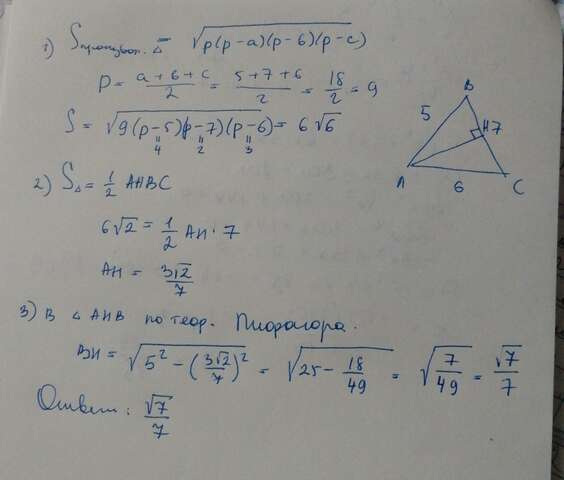 1) Sпроизвол. Δ = √(p(p-a)(p-b)(p-c))
P = (a+b+c)/2 = (5+7+6)/2 = 18/2 = 9
S = √(9(p-5)(p-7)(p-6)) = 6√6
4 2 3
2) SΔ = 1/2 AHBC
6√2 = 1/2 AH · 7
AH = 3√2/7
3) В Δ AHB по теор. Пифагора.
BH = √(5² - (3√2/7)²) = √(25 - 18/49) = √(7/49) = √7/7
Ответ: √7/7
B
5
H 7
A
6
C